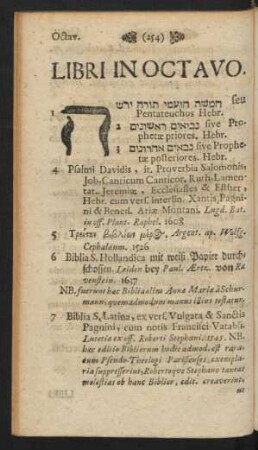 Octav. (254)
LIBRI IN OCTAVO.
1 חמשה חומשי תורה seu
Pentateuchus Hebr.
2 נביאים ראשונים sive Pro-
phetæ priores, Hebr.
3 נביאים אחרונים sive Prophe-
tæ posteriores. Hebr.
4 Psalmi Davidis, it. Proverbia Salomonis,
Job, Canticum Canticor. Ruth, Lamen-
tat. Jeremiæ, Ecclesiastes & Esther,
Hebr. cum vers. interlin. Xantis, Pagni-
ni & Bened. Ariæ Montani. Lugd. Bat.
in off. Plant. Raphel. 1608
5 Argent. ap. Wolfg.
Cephalæum. 1526
6 Biblia S. Hollandica mit weiß Papier durch-
schossen. Leiden bey Paul. Ærtz. von Ra-
venstein. 1657
NB. fuerunt hæc Biblia olim Anna Maria à Schur-
mann; quemadmodum manus illius testatur.
7 Biblia S. Latina, ex vers. Vulgata & Sanctis
Pagnini, cum notis Francisci Vatabli.
Lutetiæ ex off. Roberti Stephani. 1545. NB.
hæc editio Bibliorum hodie admod. est rara:
eam Pseudo-Theologi Parisienses, exempla-
ria suppresserint, Robertoque Stephano tantas
molestias ob hanc Biblior. edit. creaverint,
ut